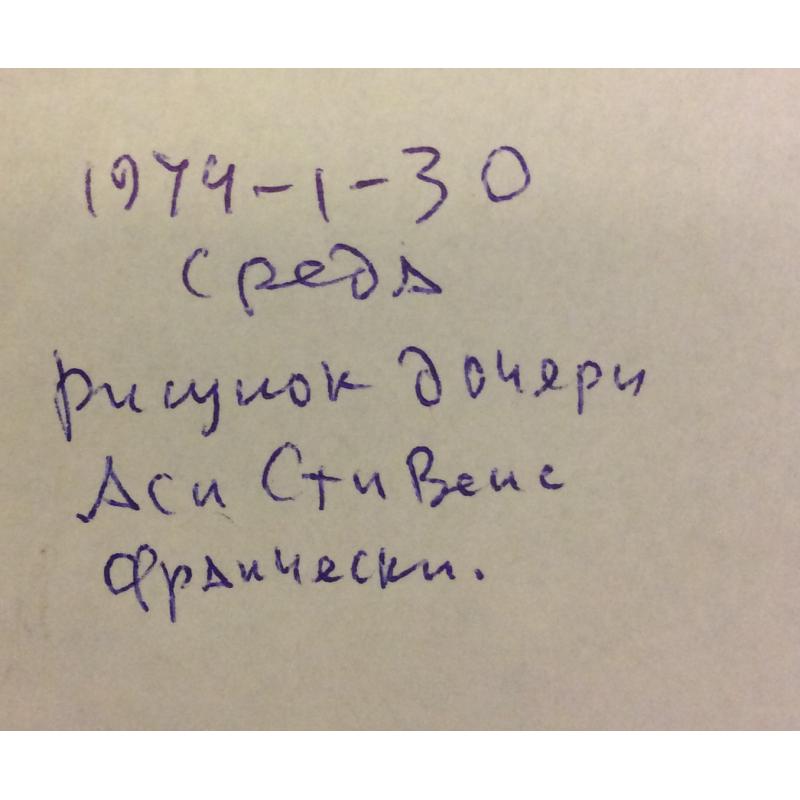 1974-1-30
среда
рисунок дочери
Аси Стивенс
Франчески.